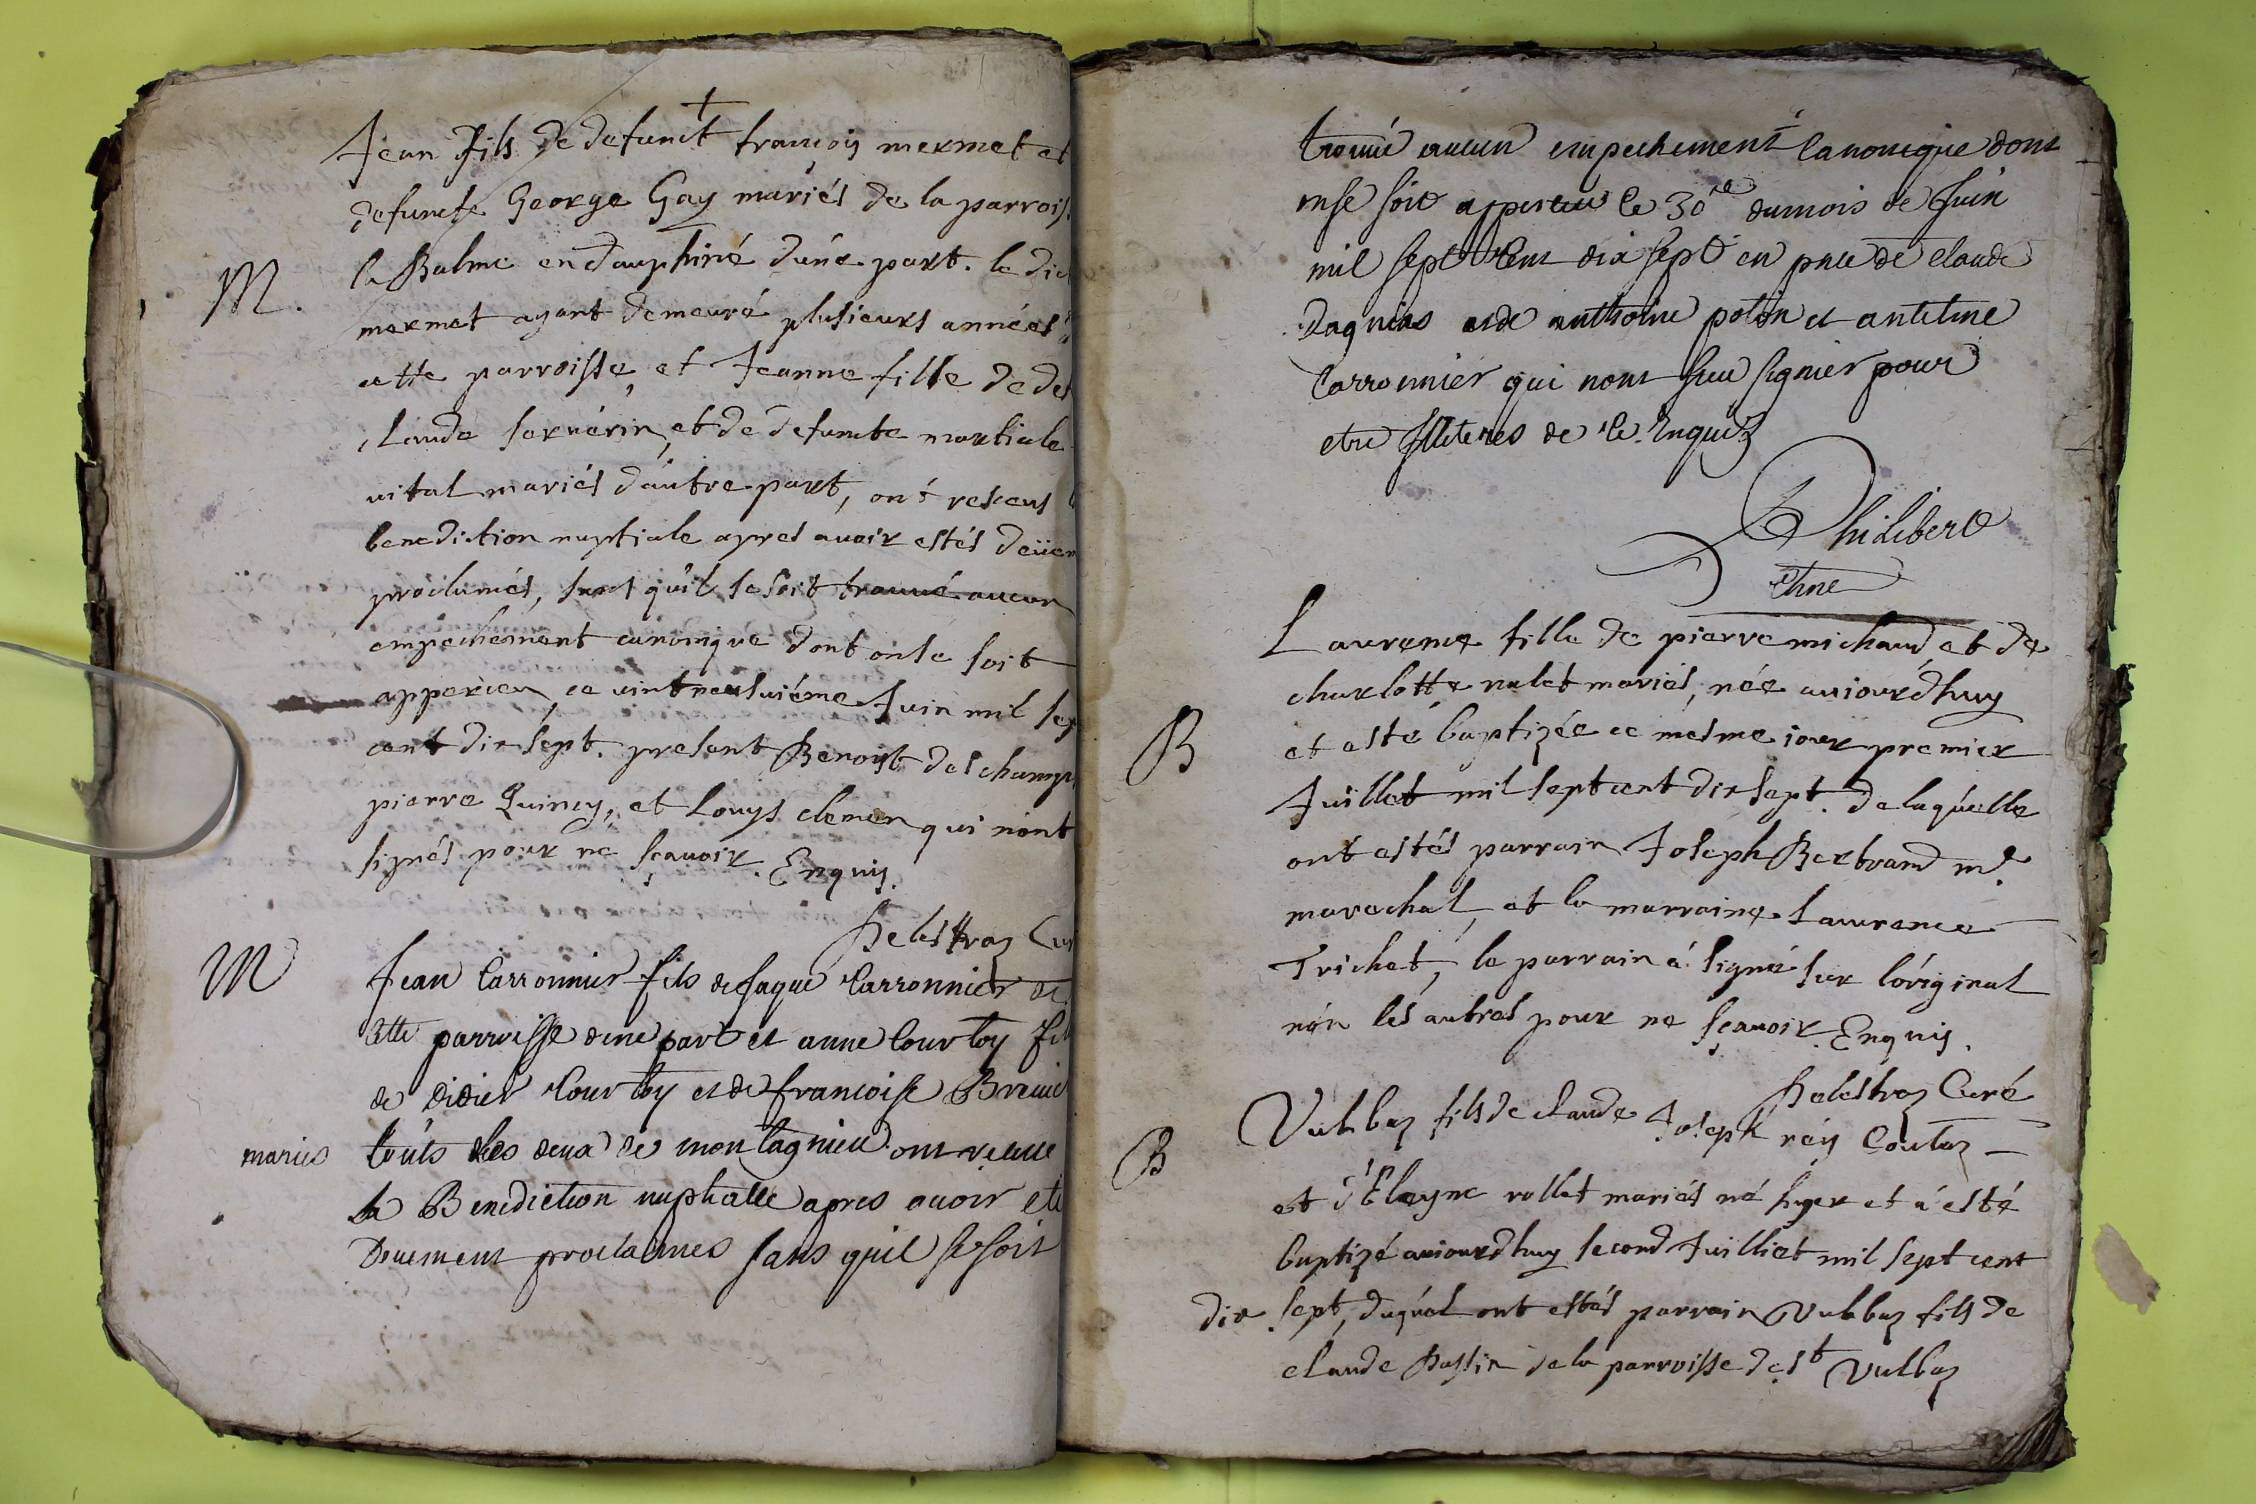 +
Jean fils de defunct françois mermet et
defuncte George Gay mariés de la parrois
M.
la Balme en dauphiné d'une part. le dic
mermet ayant demeuré plusieurs années
cette parroisse, et Jeanne fille de def
Claude seruerin, et de defuncte martiale
vital mariés d'autre part, ont resceus
benediction nuptiale apres auoir estés deüem
proclamés, sans qu'il se soit trouué aucun
empechement canonique dont on se soit
apperceu, ce vint neufuiéme Juin mil sep
cent dix sept. present Benoist deschamp
pierre Quincy, et Louys clemen qui n'ont
signés pour ne sçauoir. Enquis.
M
Jean Carronnier fils de Jaque Carronnier de
cette parroisse dune part et anne Courtoy fil
de didier Courtoy et de francoise
maries
touts les deux de montagnieu ont receue
la Benediction nuptialle apres auoir ete
Duement proclaimes sans quil se soit
trouué aucun empechement canonique dont
onse soit apperceu le 30e dumois de Juin
mil sept cent dix sept en pnce de claude
Dagnias et de anthoine potin et antelme
Carronnier qui nont sceu signier pour
etre Illiteres de ce Enquis
Philibert
Laurence fille de pierre michaud et de
charlotte nalet mariés, née auiourdhuy
B
et esté baptizée ce mesme iour premier
Juillet mil sept cent dix sept. de laquelle
ont estés parrain Joseph Bertrand me
marechal, et la marraine Laurence
Trichet, le parrain à signé sur l'original
nón les autres pour ne sçauoir. Enquis.
Curé
Vulbaz fils de claude Joseph réy Coutaz
B
et d'Elayne rollet mariés né hyer et à esté
baptizé auiourdhuy second Juilliet mil sept cent
dix sept, duquel ont estés parrain Vulbaz fils de
claude Passin de la parroisse de st Vulbaz